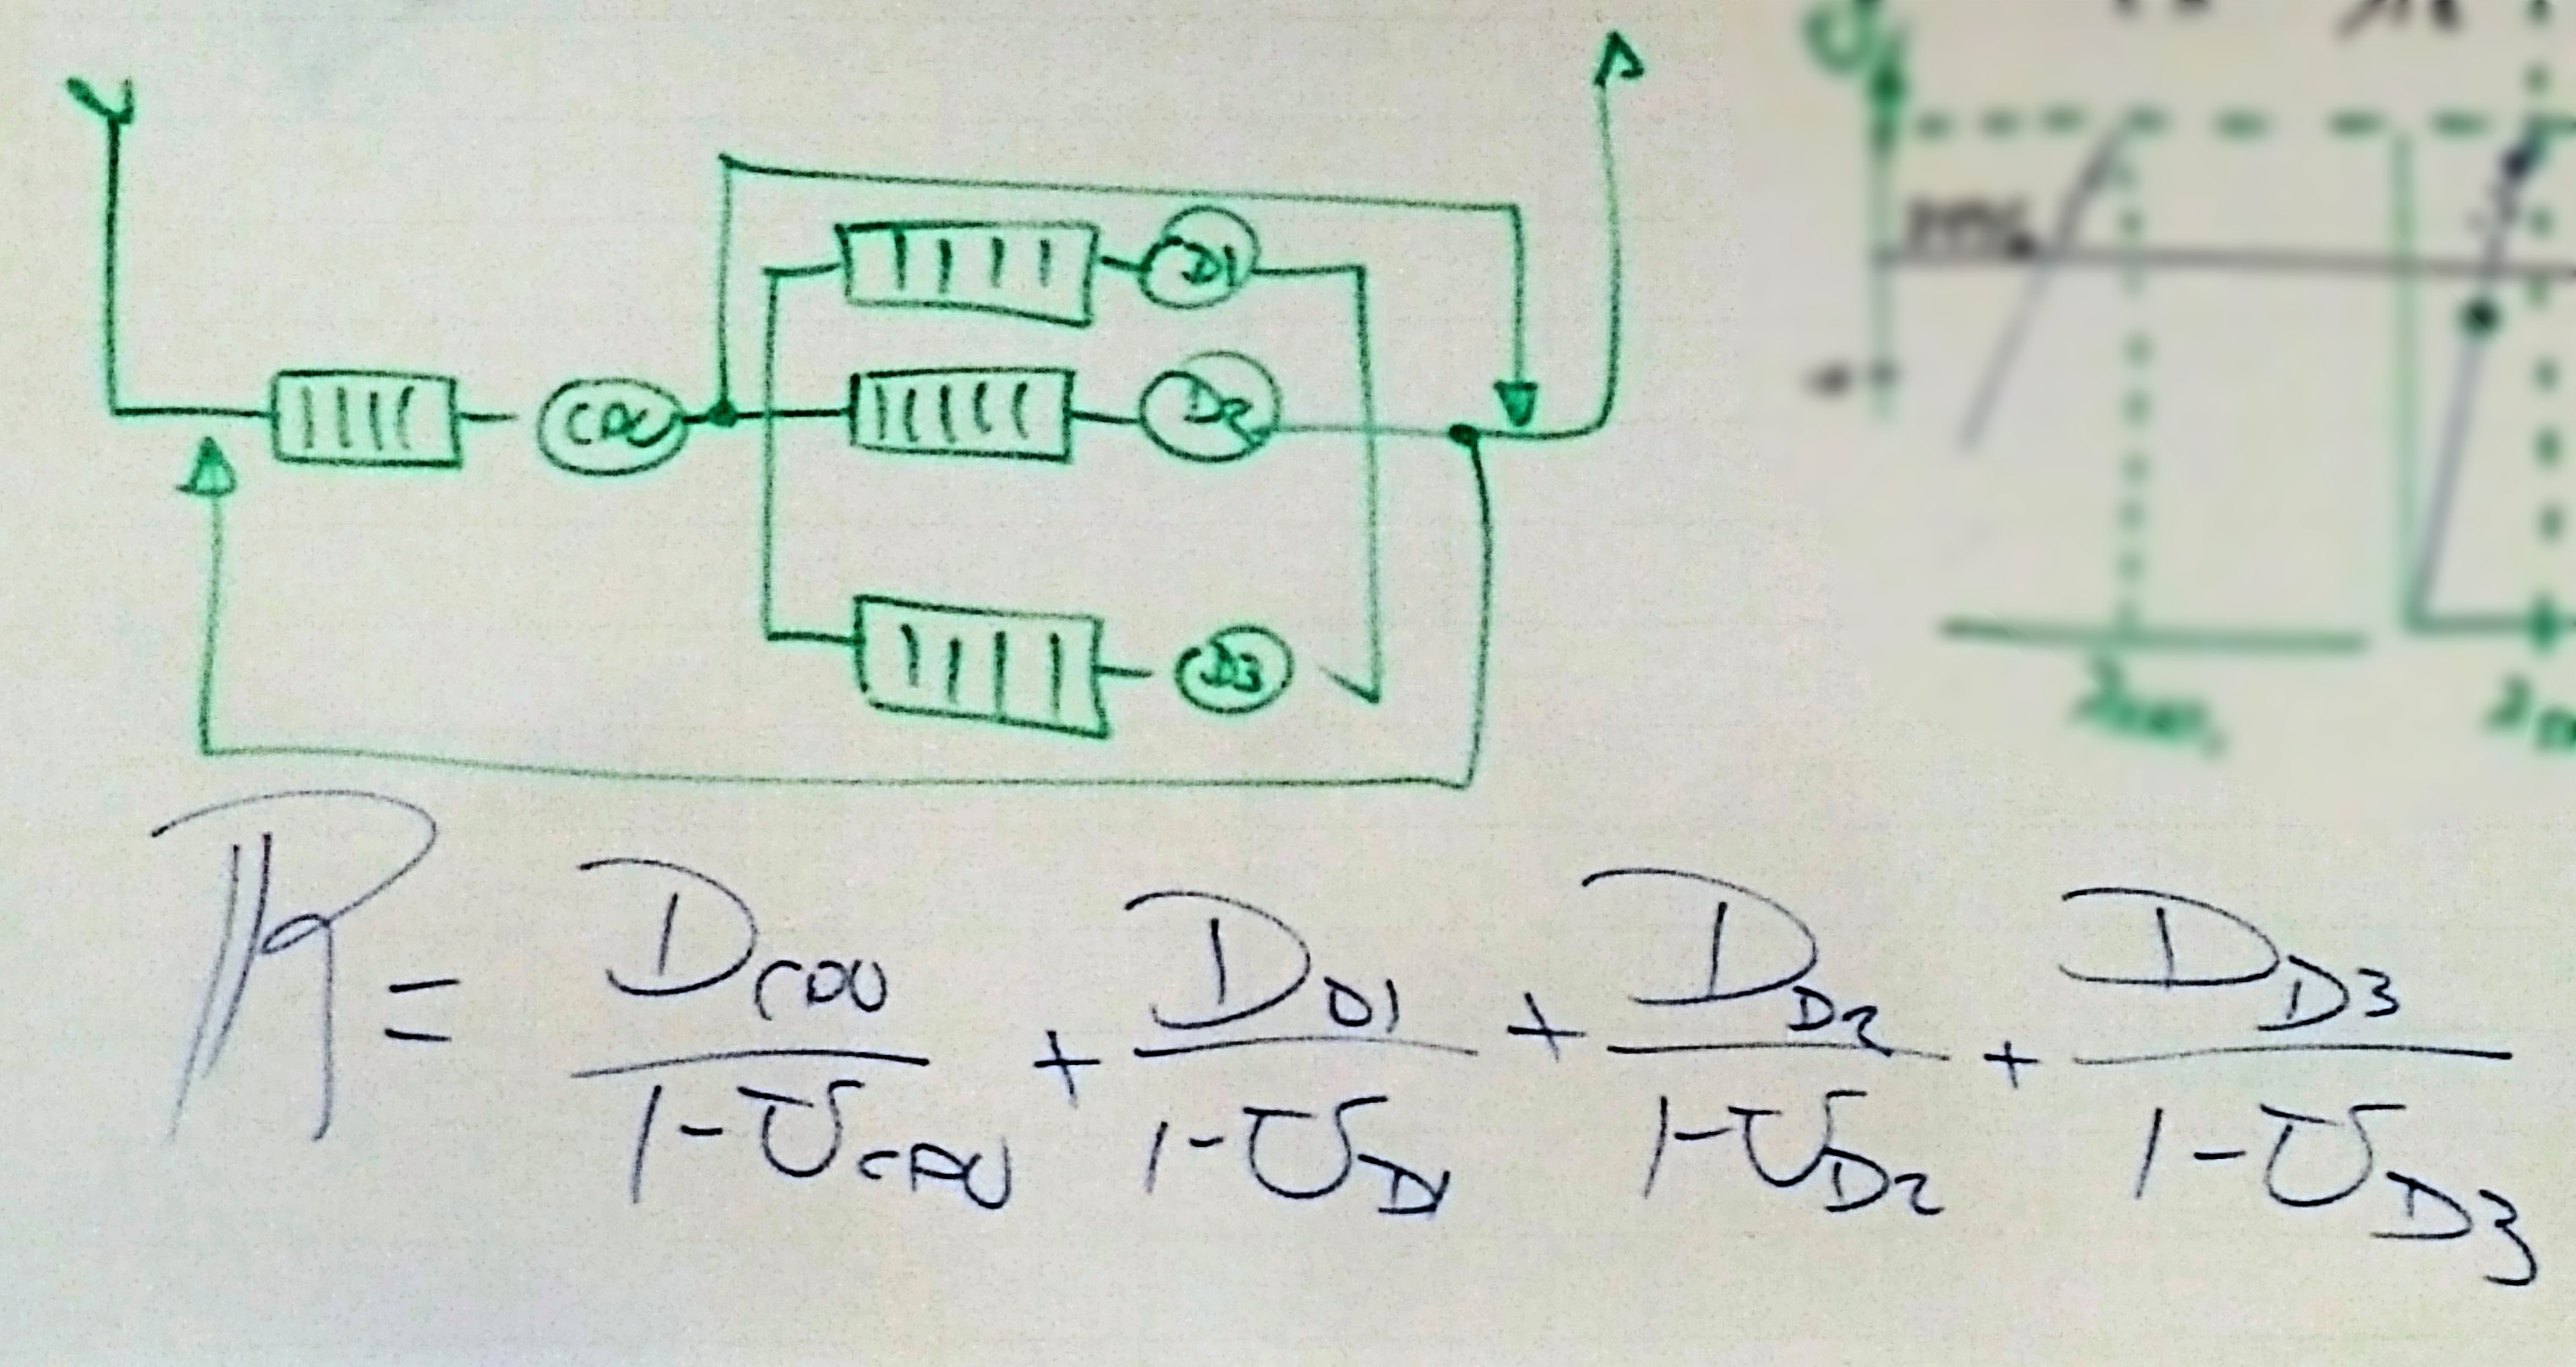 D1
CPU
D2
D3
R = D_CPU / (1-U_CPU) + D_D1 / (1-U_D1) + D_D2 / (1-U_D2) + D_D3 / (1-U_D3)